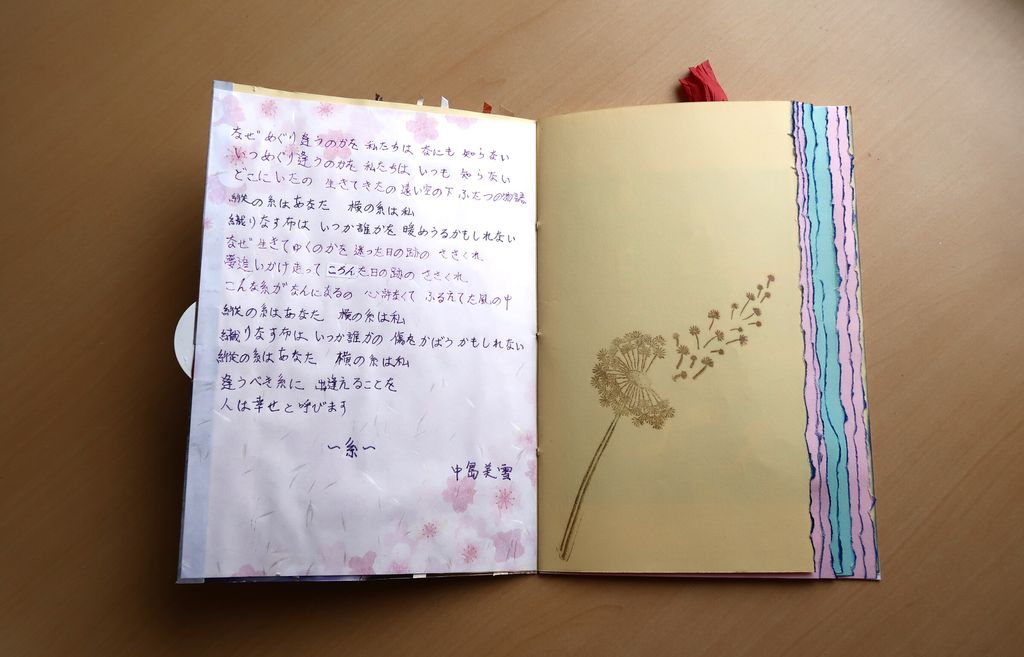 なぜ めぐり逢うのかを 私たちは なにも 知らない
いつ めぐり逢うのかを 私たちは いつも 知らない
どこにいたの 生きてきたの 遠い空の下 ふたつの物語
縦の糸はあなた 横の糸は私
織りなす布は いつか誰かを 暖めうるかもしれない
なぜ 生きてゆくのかを 迷った日の跡の ささくれ
夢追いかけ走って ころんだ日の跡の ささくれ
こんな糸が なんになるの 心許なくて ふるえてた風の中
縦の糸はあなた 横の糸は私
織りなす布は いつか誰かの 傷をかばうかもしれない
縦の糸はあなた 横の糸は私
逢うべき糸に 出逢えることを
人は幸せと呼びます
～糸～
中島美雪